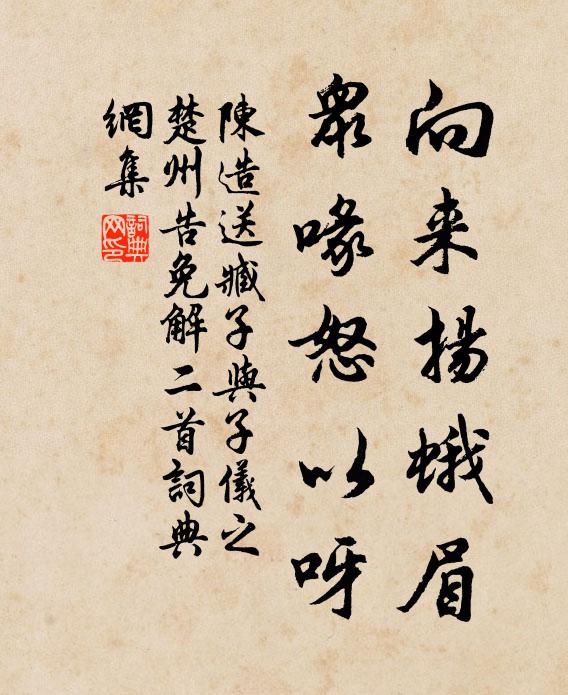 向来揚蛾眉
衆喙怒以呀
陳造送臧子與子儀之
楚州告免解二首詞典
網集
詞典
网印